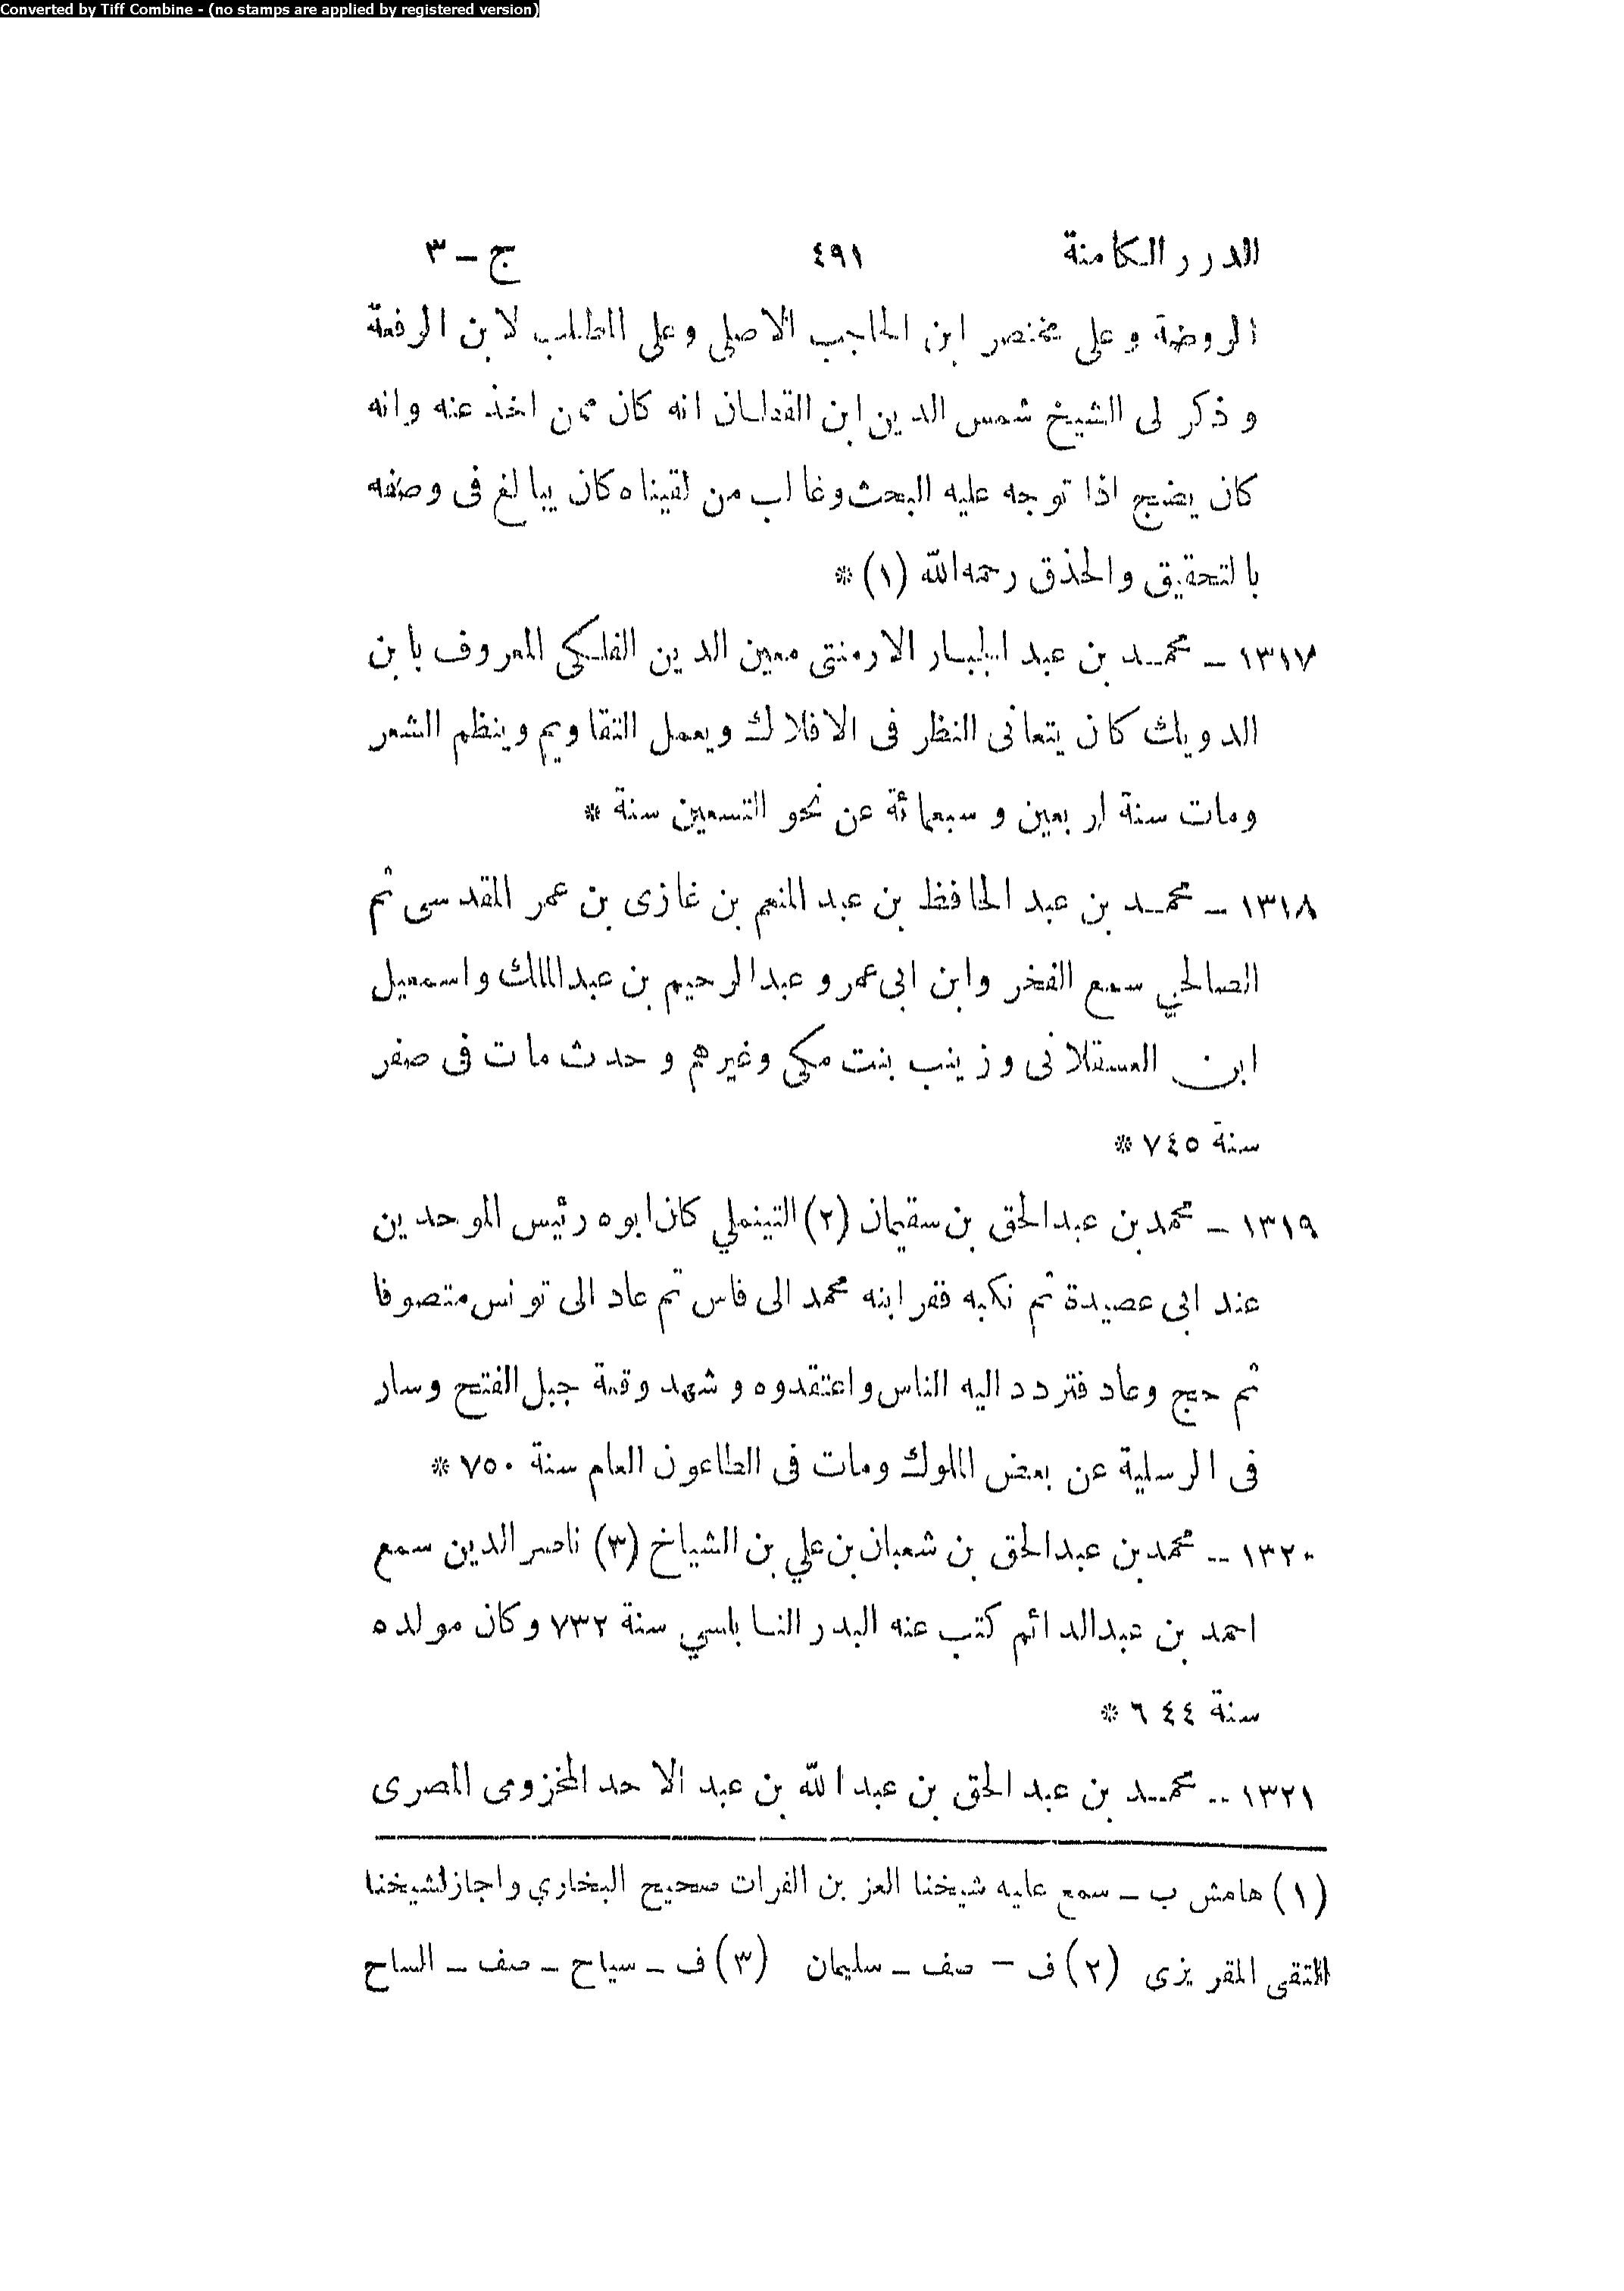 Converted by Tiff Combine - (no stamps are applied by registered version)
الدرر الكامنة ٤٩١ ج – ٣
الروضة وعلى مختصر ابن الحاجب الاصلى وعلى المطلب لابن الرفعة
وذكر لى الشيخ شمس الدين ابن القطان انه كان ممن اخذ عنه وانه
كان يضج اذا توجه عليه البحث وغالب من لقيناه كان يبالغ فى وصفه
بالتحقيق والحذق رحمه الله (١) *
١٣١٧ – محمد بن عبد الجبار الارمنتى معين الدين الفلكى المعروف بابن
الدويك كان يتعانى النظر فى الافلاك ويعمل التقاويم وينظم الشعر
ومات سنة اربعين وسبعمائة عن نحو التسعين سنة *
١٣١٨ – محمد بن عبد الحافظ بن عبد المنعم بن غازى بن عمر المقدسى ثم
الصالحي سمع الفخر وابن ابى عمر وعبد الرحيم بن عبد الملك واسمعيل
ابن العسقلانى وزينب بنت مكى وغيرهم وحدث مات فى صفر
سنة ٧٤٥ *
١٣١٩ – محمد بن عبد الحق بن سقيمان (٢) التينملي كان ابوه رئيس الموحدين
عند ابى عصيدة ثم نكبه ففر ابنه محمد الى فاس ثم عاد الى تونس متصوفا
ثم حج وعاد فتردد اليه الناس واعتقدوه وشهد وقعة جبل الفتح وسار
فى الرسلية عن بعض الملوك ومات فى الطاعون العام سنة ٧٥٠ *
١٣٢٠ – محمد بن عبد الحق بن شعبان بن علي بن الشياخ (٣) ناصر الدين سمع
احمد بن عبد الدائم كتب عنه البدر النابلسي سنة ٧٣٢ وكان مولده
سنة ٦٤٤ *
١٣٢١ – محمد بن عبد الحق بن عبد الله بن عبد الاحد المخزومى المصرى
(١) هامش ب – سمع عليه شيخنا العز بن الفرات صحيح البخاري واجاز لشيخنا
التقى المقريزى (٢) ف – صف – سليمان (٣) ف – سياح – صف – الساح